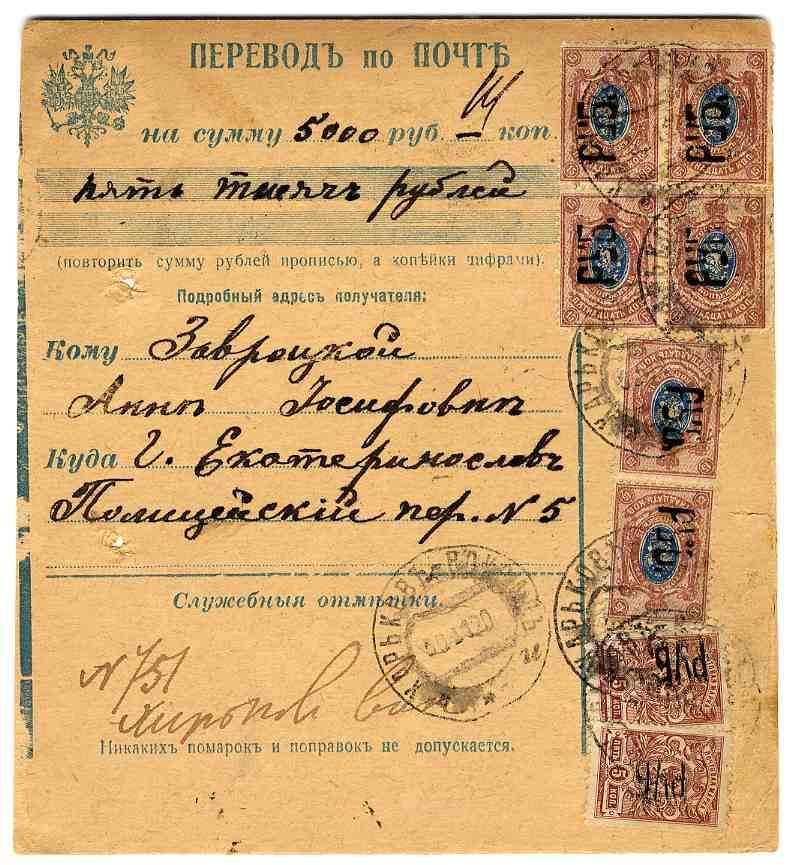 ПЕРЕВОДЪ по ПОЧТѢ
на сумму 5000 руб. — коп
пять тысячъ рублей
(повторить сумму рублей прописью, а копѣйки цифрами).
Подробный адресъ получателя:
Кому Завроцкой
Аннѣ Іосифовнѣ
Куда Г. Екатеринославъ
Полицейскій пер. N 5
Служебныя отмѣтки.
N 751
Никакихъ помарокъ и поправокъ не допускается.
ХАРЬКОВЪ-ВОКЗАЛЪ
РУБ.
РУБ.
РУБ.
РУБ.
РУБ.
РУБ.
РУБ.
5 КОП.
РУБ
5 КОП.